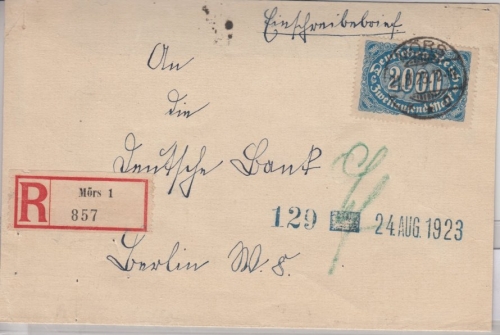 Einschreibebrief
Deutsches Reich
2000
Zweitausend Mark
An
die
Deutsche Bank
R
Mörs 1
857
129
24 AUG. 1923
Berlin W. 8.